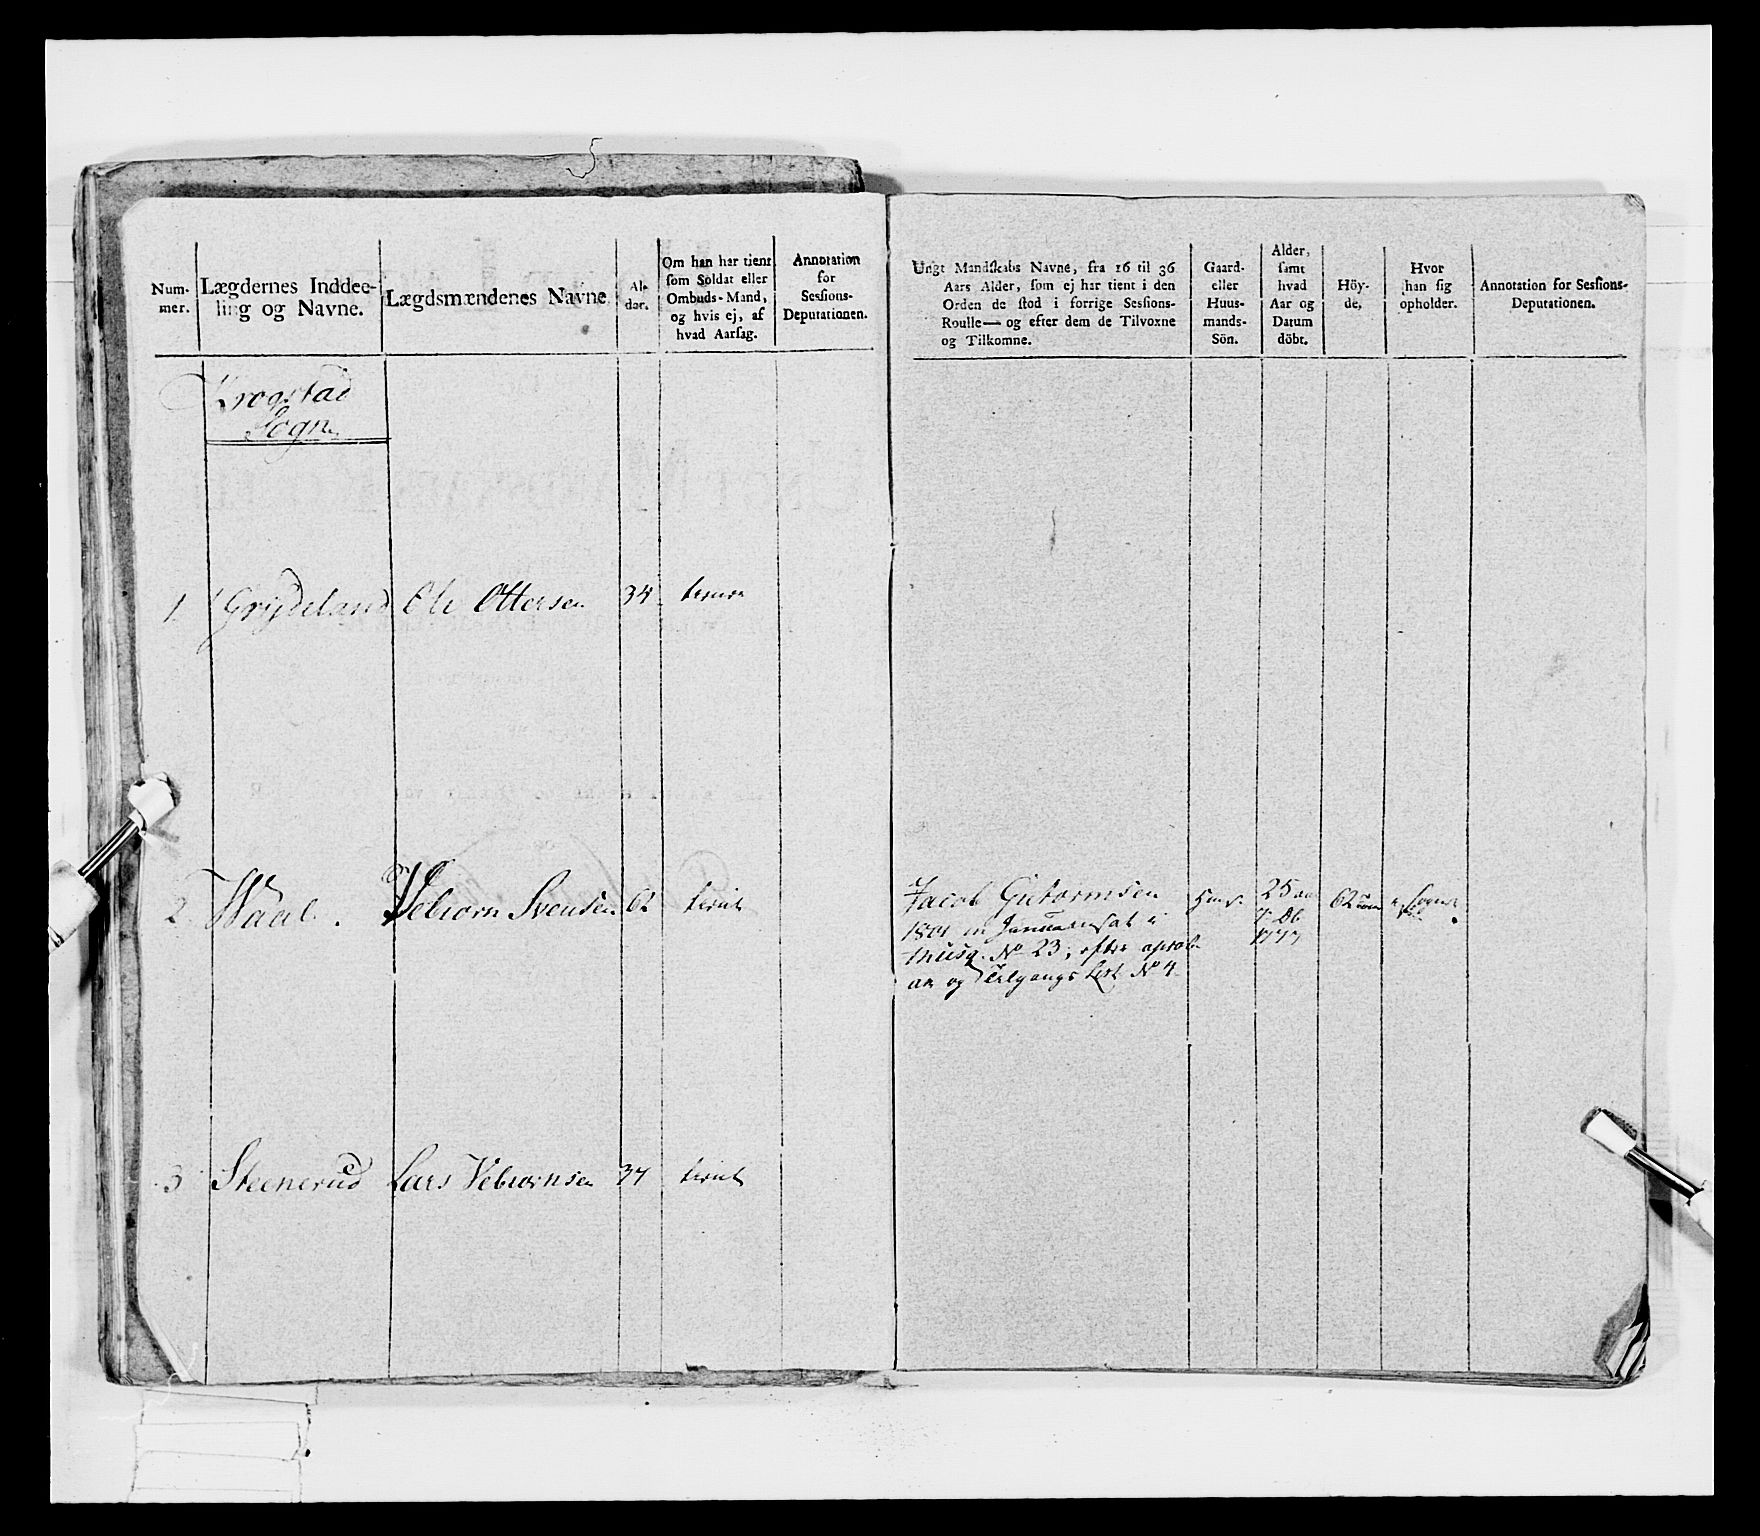 Num-
mer.
Lægdernes Inddee-
ling og Navne.
Lægdsmændenes Navne
Al-
der.
Om han har tient
som Soldat eller
Ombuds-Mand,
og hvis ej, af
hvad Aarsag.
Annotation
for
Sessions-
Deputationen.
Ungt Mandskabs Navne, fra 16 til 36
Aars Alder, som ej har tient i den
Orden de stod i forrige Sessions-
Roulle— og efter dem de Tilvoxne
og Tilkomne.
Gaard-
eller
Huus-
mands-
Sön.
Alder,
samt
hvad
Aar og
Datum
döbt.
Höy-
de,
Hvor
han sig
opholder.
Annotation for Sessions-
Deputationen.
Krogstad
Sogn
1. Grydeland Ole Ottersen 34
2 Waal. Vebiorn Svensen 62 tient
Jacob Guttormsen
1801 in Januar sat i
Musq. No 23, efter
og Tilgangs List No 4
25
1777
62
3 Steenerud Lars Vebiornsen 37 tient